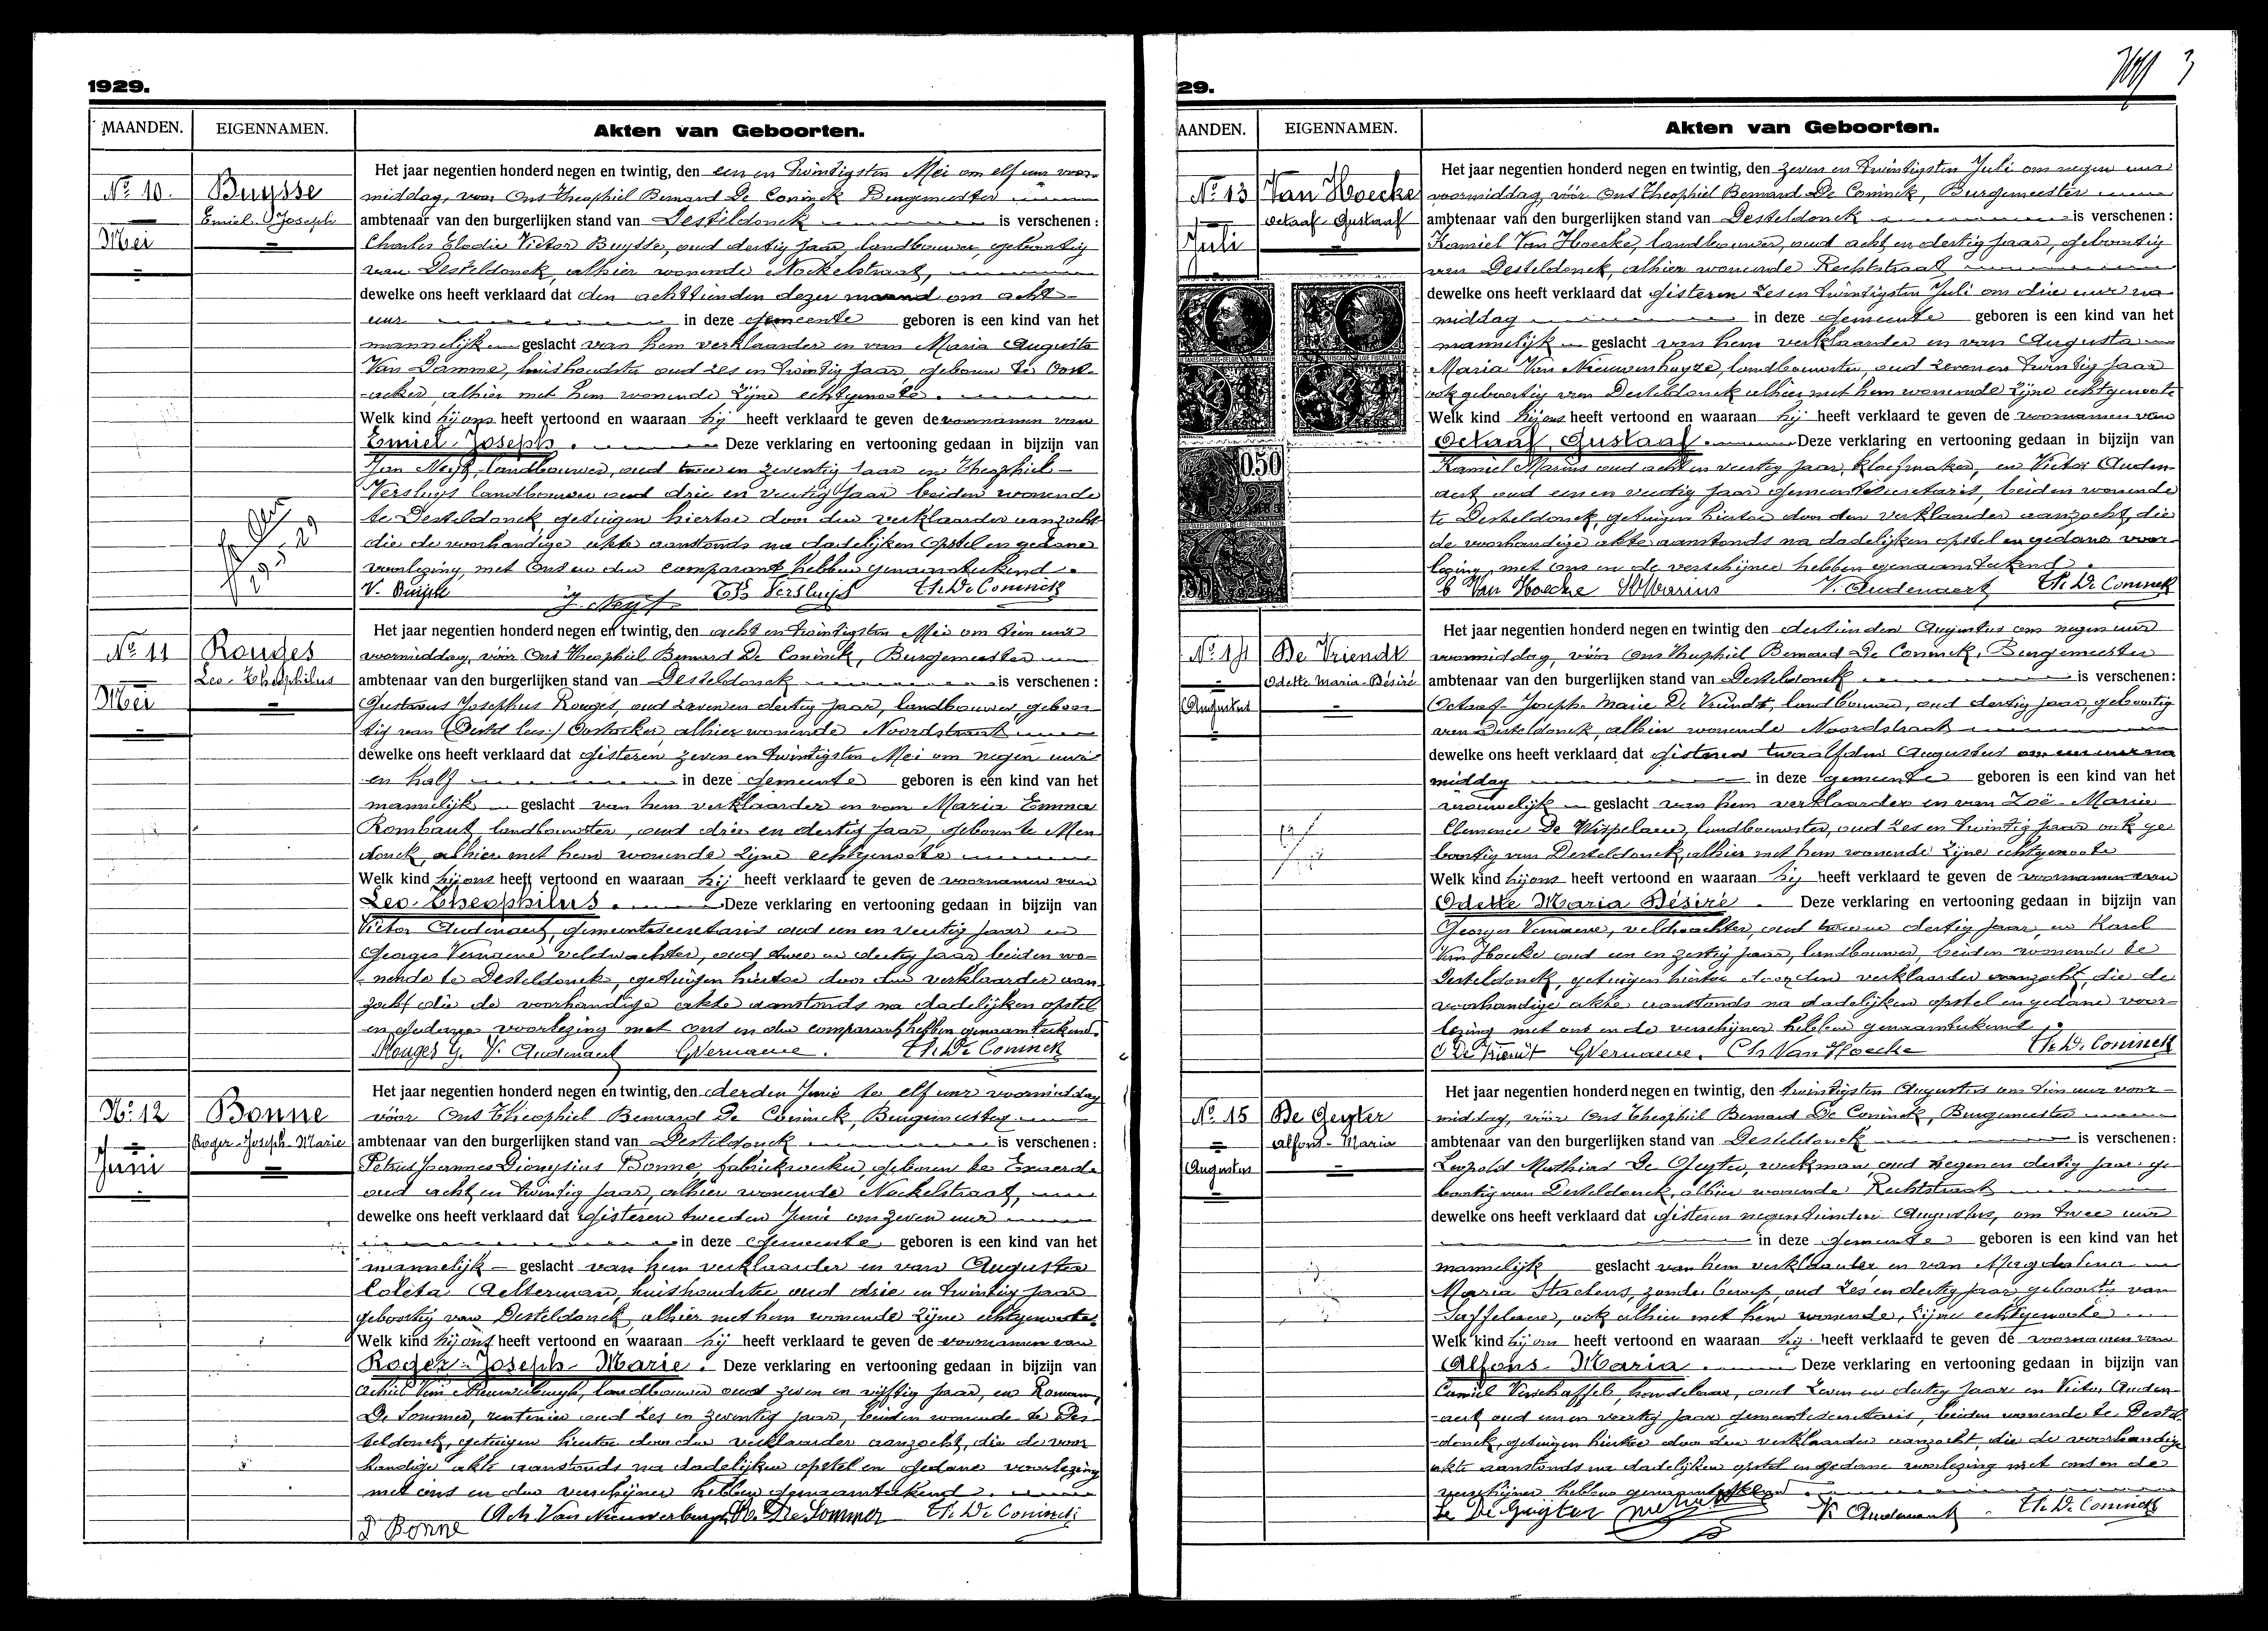 1929.
MAANDEN.
EIGENNAMEN.
Akten van Geboorten.
Nº 10.
Mei
Buysse
Emiel-Joseph
Het jaar negentien honderd negen en twintig, den een en twintigsten Mei om elf uur voor-
middag, voor Ons Theophiel Bernard De Coninck Burgemeester
ambtenaar van den burgerlijken stand van Desteldonck is verschenen :
Charles Elodie Victor Buysse, oud dertig jaar, landbouwer, geboortig
van Desteldonck, alhier wonende Nockelstraat,
dewelke ons heeft verklaard dat den achttienden dezer maand om acht
uur in deze gemeente geboren is een kind van het
mannelijk geslacht van hem verklaarder en van Maria Augusta
Van Damme, huishoudster oud zes en twintig jaar, geboren te Oost-
-acker, alhier met hem wonende zijne echtgenoote.
Welk kind hij ons heeft vertoond en waaraan hij heeft verklaard te geven de voornamen van
Emiel-Joseph. Deze verklaring en vertooning gedaan in bijzijn van
Jan Neyt, landbouwer, oud twee en zeventig jaar en Theophiel
Versluys landbouwer oud drie en veertig jaar beiden wonende
te Desteldonck, getuigen hiertoe door den verklaarder aanzocht
die de voorhandige akte aanstonds na dadelijken opstel en gedane
voorlezing, met Ons en den comparant hebben genaamteekend.
V. Buysse J. Neyt Th Versluys Th. De Coninck
Nº 11
Mei
Rouges
Leo-Theophilus
Het jaar negentien honderd negen en twintig, den acht en twintigsten Mei om tien uur
voormiddag, vóór Ons Theophiel Bernard De Coninck, Burgemeester
ambtenaar van den burgerlijken stand van Desteldonck is verschenen :
Gustavus Josephus Rouges, oud zeven en dertig jaar, landbouwer geboor-
tig van Oostacker alhier wonende Noordstraat
dewelke ons heeft verklaard dat gisteren zeven en twintigsten Mei om negen uur
en half in deze gemeente geboren is een kind van het
mannelijk geslacht van hem verklaarder en van Maria Emma
Rombaut, landbouwster, oud drie en dertig jaar, geboren te Men
donck, alhier met hem wonende zijne echtgenoote
Welk kind hij ons heeft vertoond en waaraan hij heeft verklaard te geven de voornamen van
Leo-Theophilus. Deze verklaring en vertooning gedaan in bijzijn van
Victor Audenaert, gemeentesecretaris oud een en veertig jaar en
Georges Vernaeve veldwachter, oud twee en dertig jaar beiden wo-
-nende te Desteldonck, getuigen hiertoe door den verklaarder aan-
zocht die de voorhandige akte aanstonds na dadelijken opstel
en gedane voorlezing met ons en den comparant hebben genaamteekend.
Rouges G. V. Audenaert GVernaeve. Th. De Coninck
Nº 12
Juni
Bonne
Roger-Joseph-Marie
Het jaar negentien honderd negen en twintig, den derden Juni te elf uur voormiddag
vóór Ons Theophiel Bernard De Coninck, Burgemeester
ambtenaar van den burgerlijken stand van Desteldonck is verschenen :
Petrus Joannes Dionysius Bonne, fabriekwerker, geboren te Exaerde
oud acht en twintig jaar, alhier wonende Nockelstraat,
dewelke ons heeft verklaard dat gisteren tweeden Juni om zeven uur
in deze gemeente geboren is een kind van het
mannelijk geslacht van hem verklaarder en van Augusta
Coleta Aelterman, huishoudster oud drie en twintig jaar
geboortig van Desteldonck alhier met hem wonende zijne echtgenoote.
Welk kind hij ons heeft vertoond en waaraan hij heeft verklaard te geven de voornamen van
Roger-Joseph-Marie. Deze verklaring en vertooning gedaan in bijzijn van
Achiel Van Nieuwerburgh, landbouwer oud zeven en vijftig jaar, en Roman
De Sommer, rentenier oud zes en zeventig jaar, beiden wonende te Des-
teldonck, getuigen hiertoe door den verklaarder aanzocht, die de voor
handige akte aanstonds na dadelijken opstel en gedane voorlezing
met ons en den verschijner hebben genaamteekend.
P Bonne Ach. Van Nieuwerburgh Ro. De Sommer Th. De Coninck
29.
AANDEN.
EIGENNAMEN.
Akten van Geboorten.
Nº 13
Juli
Van Hoecke
Octaaf-Gustaaf
0.50
Het jaar negentien honderd negen en twintig, den zeven en twintigsten Juli om negen uur
voormiddag, vóór Ons Theophiel Bernard De Coninck, Burgemeester
ambtenaar van den burgerlijken stand van Desteldonck is verschenen :
Kamiel Van Hoecke, landbouwer, oud acht en dertig jaar, geboortig
van Desteldonck, alhier wonende Rechtstraat
dewelke ons heeft verklaard dat gisteren zes en twintigsten Juli om drie uur na
middag in deze gemeente geboren is een kind van het
mannelijk geslacht van hem verklaarder en van Augusta
Maria Van Nieuwenhuyze, landbouwster, oud zeven en twintig jaar
ook geboortig van Desteldonck alhier met hem wonende zijne echtgenoote
Welk kind hij ons heeft vertoond en waaraan hij heeft verklaard te geven de voornamen van
Octaaf, Gustaaf. Deze verklaring en vertooning gedaan in bijzijn van
Kamiel Marius oud acht en veertig jaar, kloefmaker, en Victor Auden-
aert oud een en veertig jaar gemeentesecretaris, beiden wonende
te Desteldonck, getuigen hiertoe door den verklaarder aanzocht, die
de voorhandige akte aanstonds na dadelijken opstel en gedane voor-
lezing, met Ons en de verschijner hebben genaamteekend.
C Van Hoecke Marius V. Audenaert Th. De Coninck
Nº 14
Augustus
De Vriendt
Odette Maria-Désiré
Het jaar negentien honderd negen en twintig den dertienden Augustus om negen uur
voormiddag, vóór Ons Theophiel Bernard De Coninck, Burgemeester
ambtenaar van den burgerlijken stand van Desteldonck is verschenen :
Octaaf-Joseph-Marie De Vriendt, landbouwer, oud dertig jaar, geboortig
van Desteldonck, alhier wonende Noordstraat
dewelke ons heeft verklaard dat gisteren twaalfden Augustus om een uur na
middag in deze gemeente geboren is een kind van het
vrouwelijk geslacht van hem verklaarder en van Zoë-Marie
Clemence De Wispelaere, landbouwster, oud zes en twintig jaar ook ge
boortig van Desteldonck, alhier met hem wonende zijne echtgenoote
Welk kind hij ons heeft vertoond en waaraan hij heeft verklaard te geven de voornamen van
Odette Maria Désiré. Deze verklaring en vertooning gedaan in bijzijn van
Georges Vernaeve, veldwachter, oud twee en dertig jaar, en Karel
Van Hoecke oud een en zestig jaar, landbouwer, beiden wonende te
Desteldonck, getuigen hiertoe door den verklaarder aanzocht, die de
voorhandige akte aanstonds na dadelijken opstel en gedane voor-
lezing met ons en de verschijner hebben genaamteekend.
O De Vriendt GVernaeve. Ch Van Hoecke Th. De Coninck
Nº 15
Augustus
De Geyter
Alfons-Maria
Het jaar negentien honderd negen en twintig, den twintigsten Augustus om tien uur voor-
middag, vóór Ons Theophiel Bernard De Coninck, Burgemeester
ambtenaar van den burgerlijken stand van Desteldonck is verschenen :
Leopold Mathias De Geyter, werkman oud negen en dertig jaar ge
boortig van Desteldonck, alhier wonende Rechtstraat
dewelke ons heeft verklaard dat gisteren negentienden Augustus, om twee uur
in deze gemeente geboren is een kind van het
mannelijk geslacht van hem verklaarder en van Magdalena
Maria Staelens, zonder beroep, oud zes en dertig jaar, geboortig van
Saffelaere, ook alhier met hem wonende, zijne echtgenoote
Welk kind hij ons heeft vertoond en waaraan hij heeft verklaard te geven de voornamen van
Alfons-Maria. Deze verklaring en vertooning gedaan in bijzijn van
Camiel Verschaffel, handelaar, oud zeven en dertig jaar en Victor Auden-
-aert oud een en veertig jaar gemeentesecretaris, beiden wonende te Destel-
-donck, getuigen hiertoe door den verklaarder aanzocht, die de voorhandige
akte aanstonds na dadelijken opstel en gedane voorlezing met ons en de
verschijner hebben genaamteekend.
Le De Geyter V. Audenaert Th. De Coninck